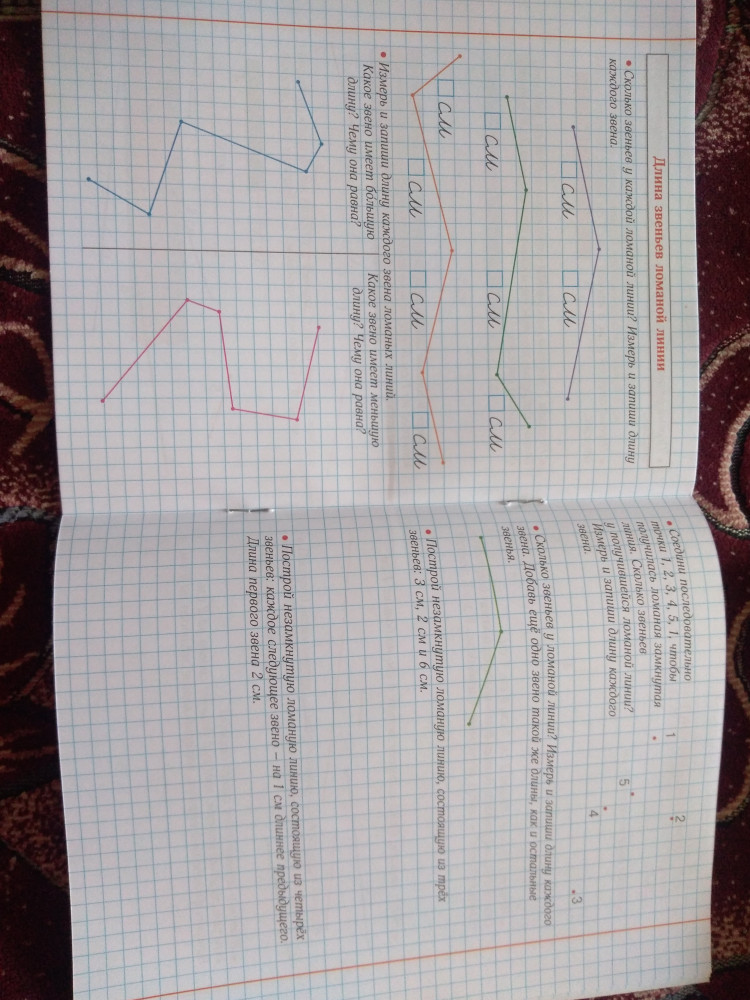 Длина звеньев ломаной линии
• Сколько звеньев у каждой ломаной линии? Измерь и запиши длину
каждого звена.
см см
см см см
см см см см
• Измерь и запиши длину каждого звена ломаных линий.
Какое звено имеет бо́льшую
длину? Чему она равна?
Какое звено имеет меньшую
длину? Чему она равна?
• Соедини последовательно
точки 1, 2, 3, 4, 5, 1, чтобы
получилась ломаная замкнутая
линия. Сколько звеньев
у получившейся ломаной линии?
Измерь и запиши длину каждого
звена.
1
2
5
4
3
• Сколько звеньев у ломаной линии? Измерь и запиши длину каждого
звена. Добавь ещё одно звено такой же длины, как и остальные
звенья.
• Построй незамкнутую ломаную линию, состоящую из трёх
звеньев: 3 см, 2 см и 6 см.
• Построй незамкнутую ломаную линию, состоящую из четырёх
звеньев: каждое следующее звено – на 1 см длиннее предыдущего.
Длина первого звена 2 см.